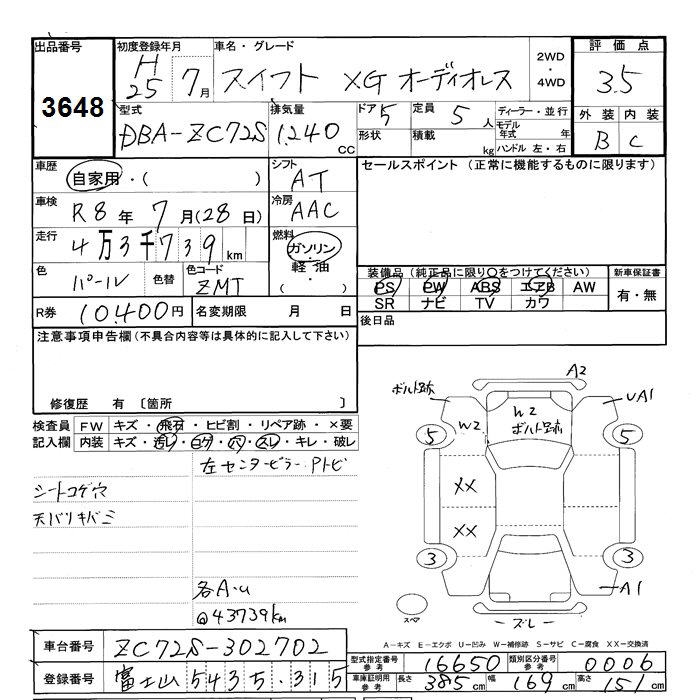 出品番号 初度登録年月 車名・グレード 2WD・4WD 評価点
3648 H25 7月 スイフト XG オーディオレス 3.5
型式 排気量 ドア 定員 ディーラー・並行 外装 内装
DBA-ZC72S 1240 CC 5 5人 モデル年式 年 B C
形状 積載 kg ハンドル 左・右
車歴 自家用・( ) シフト AT セールスポイント (正常に機能するものに限ります)
車検 R8年 7月(28日) 冷房 AAC
走行 4万3千739km 燃料 ガソリン・軽油・( )
色 パール 色替 色コード ZMT
装備品 (純正品に限り○をつけてください) 新車保証書
PS PW ABS エアB AW 有・無
SR ナビ TV カワ
R券 10,400円 名変期限 月 日 後日品
注意事項申告欄(不具合内容等は具体的に記入して下さい)
修復歴 有 〔箇所 〕
検査員記入欄 FW キズ・飛石・ヒビ割・リペア跡・×要
内装 キズ・汚レ・コゲ・穴・スレ・キレ・破レ
左センターピラー Pトビ
シートコゲ穴
天バリキバミ
各A・U
@43739km
A2
ボルト跡 UA1
W2 W2 ボルト跡
5 5
XX
XX
3 3
A1
スペア スレ
A－キズ E－エクボ U－凹み W－補修跡 S－サビ C－腐食 XX－交換済
車台番号 ZC72S-302702
型式指定番号 参考 16650 類別区分番号 参考 0006
登録番号 富士山 543 5.315
車庫証明用 参考 長さ 385cm 幅 169cm 高さ 151cm